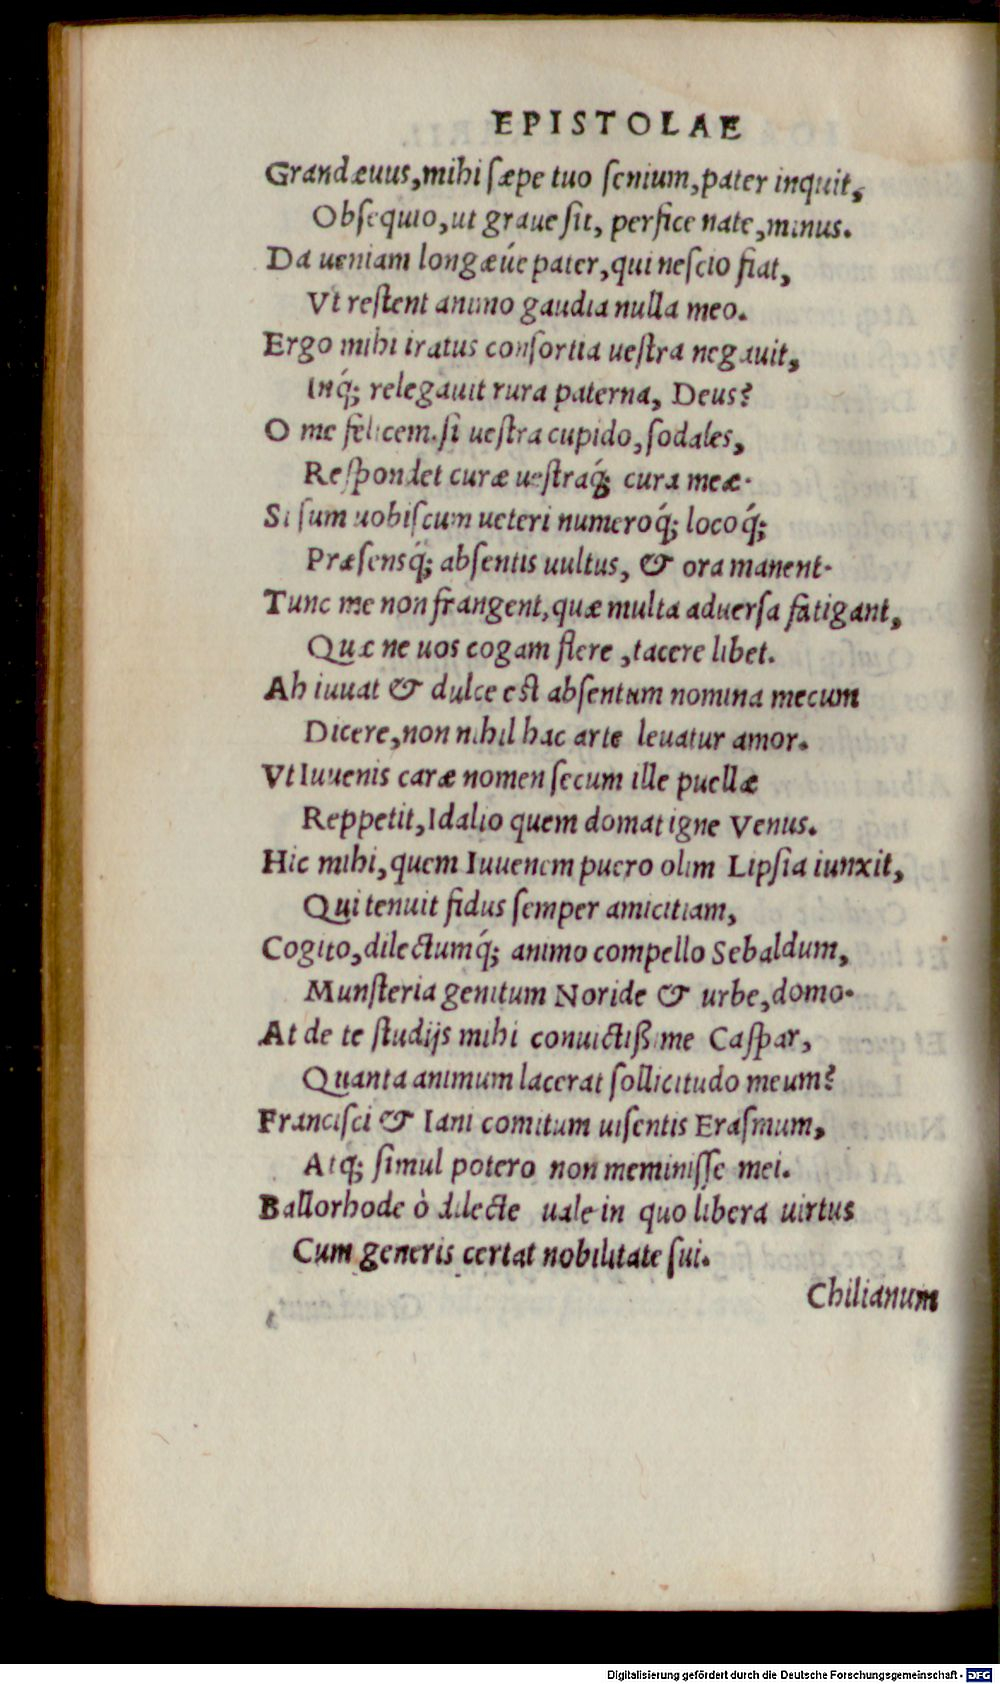 EPISTOLAE
Grandæuus, mihi sæpe tuo senium, pater inquit,
Obsequio, ut graue sit, perfice nate, minus.
Da ueniam longæúe pater, qui nescio fiat,
Vt restent animo gaudia nulla meo.
Ergo mihi iratus consortia uestra negauit,
Inq́; relegauit rura paterna, Deus?
O me felicem. si uestra cupido, sodales,
Respondet curæ uestraq́; cura meæ.
Si sum uobiscum ueteri numeroq́; locoq́;
Præsensq́; absentis uultus, & ora manent.
Tunc me non frangent, quæ multa aduersa fatigant,
Quæ ne uos cogam flere, tacere libet.
Ah iuuat & dulce est absentum nomina mecum
Dicere, non nihil hac arte leuatur amor.
Vt Iuuenis caræ nomen secum ille puellæ
Reppetit, Idalio quem domat igne Venus.
Hic mihi, quem Iuuenem puero olim Lipsia iunxit,
Qui tenuit fidus semper amicitiam,
Cogito, dilectumq́; animo compello Sebaldum,
Munsteria genitum Noride & urbe, domo.
At de te studijs mihi conuictißime Caspar,
Quanta animum lacerat sollicitudo meum?
Francisci & Iani comitum uisentis Erasmum,
Atq́; simul potero non meminisse mei.
Ballorhode ò dilecte uale in quo libera uirtus
Cum generis certat nobilitate sui.
Chilianum
Digitalisierung gefördert durch die Deutsche Forschungsgemeinschaft - DFG